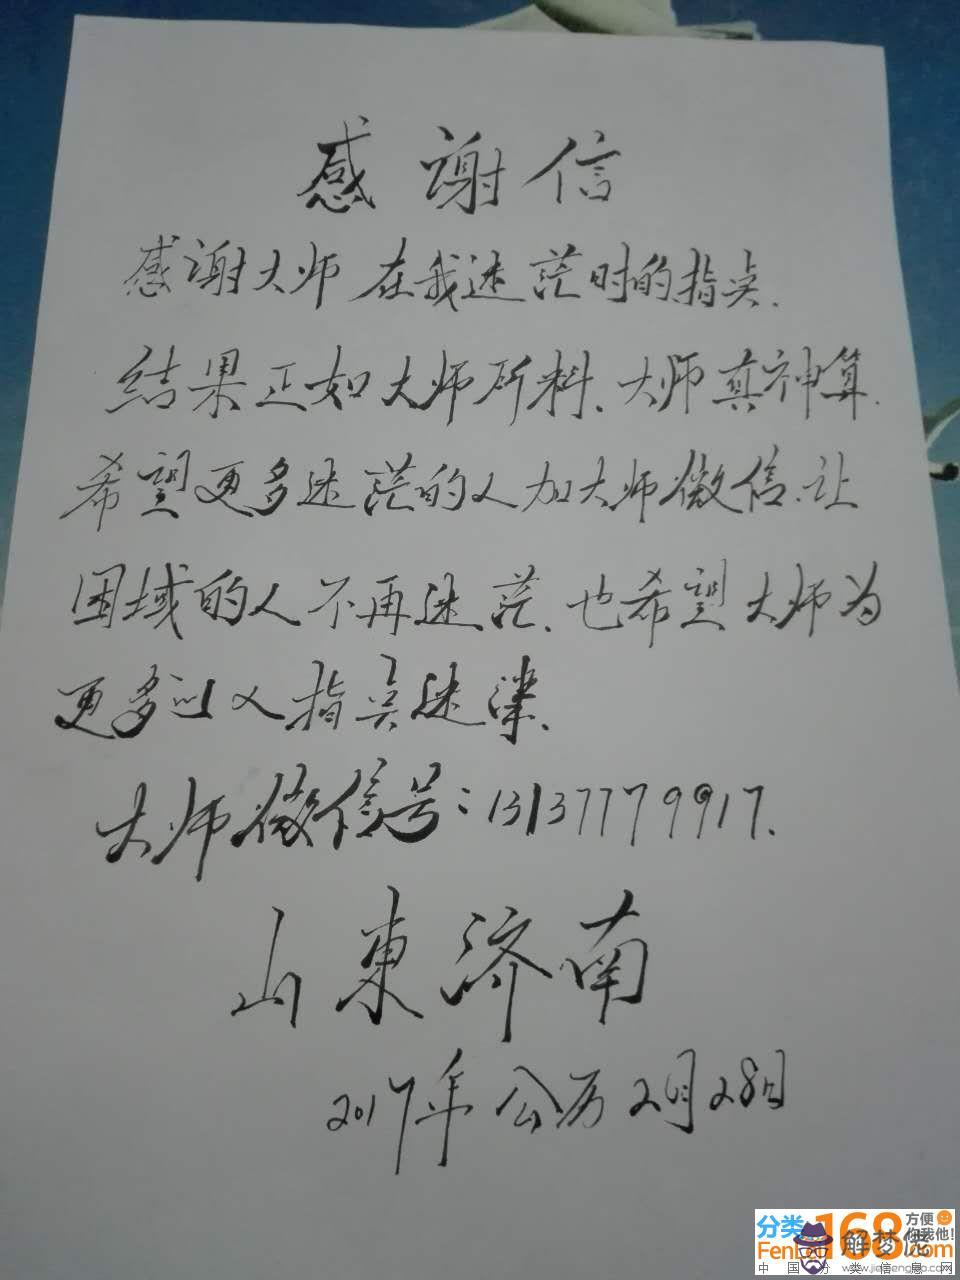 感谢信
感谢大师在我迷茫时的指点.
结果正如大师所料、大师真神算.
希望更多迷茫的人加大师微信、让
困域的人不再迷茫、也希望大师为
更多的人指点迷津、
大师微信号：13137779917.
山東济南
2017年公历2月28日
分类168 方便你我他!
Fenlei168.com
解梦佬
中国分类信息网